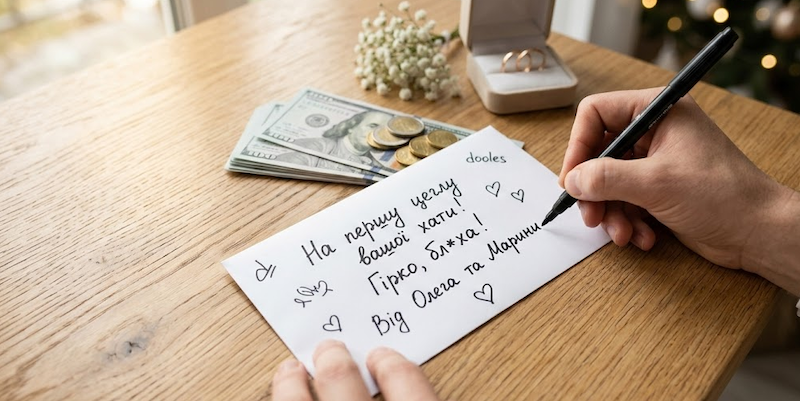 dooles
На першу цеглу
вашої хати!
Гірко, бл*ха!
Від Олега та Марини